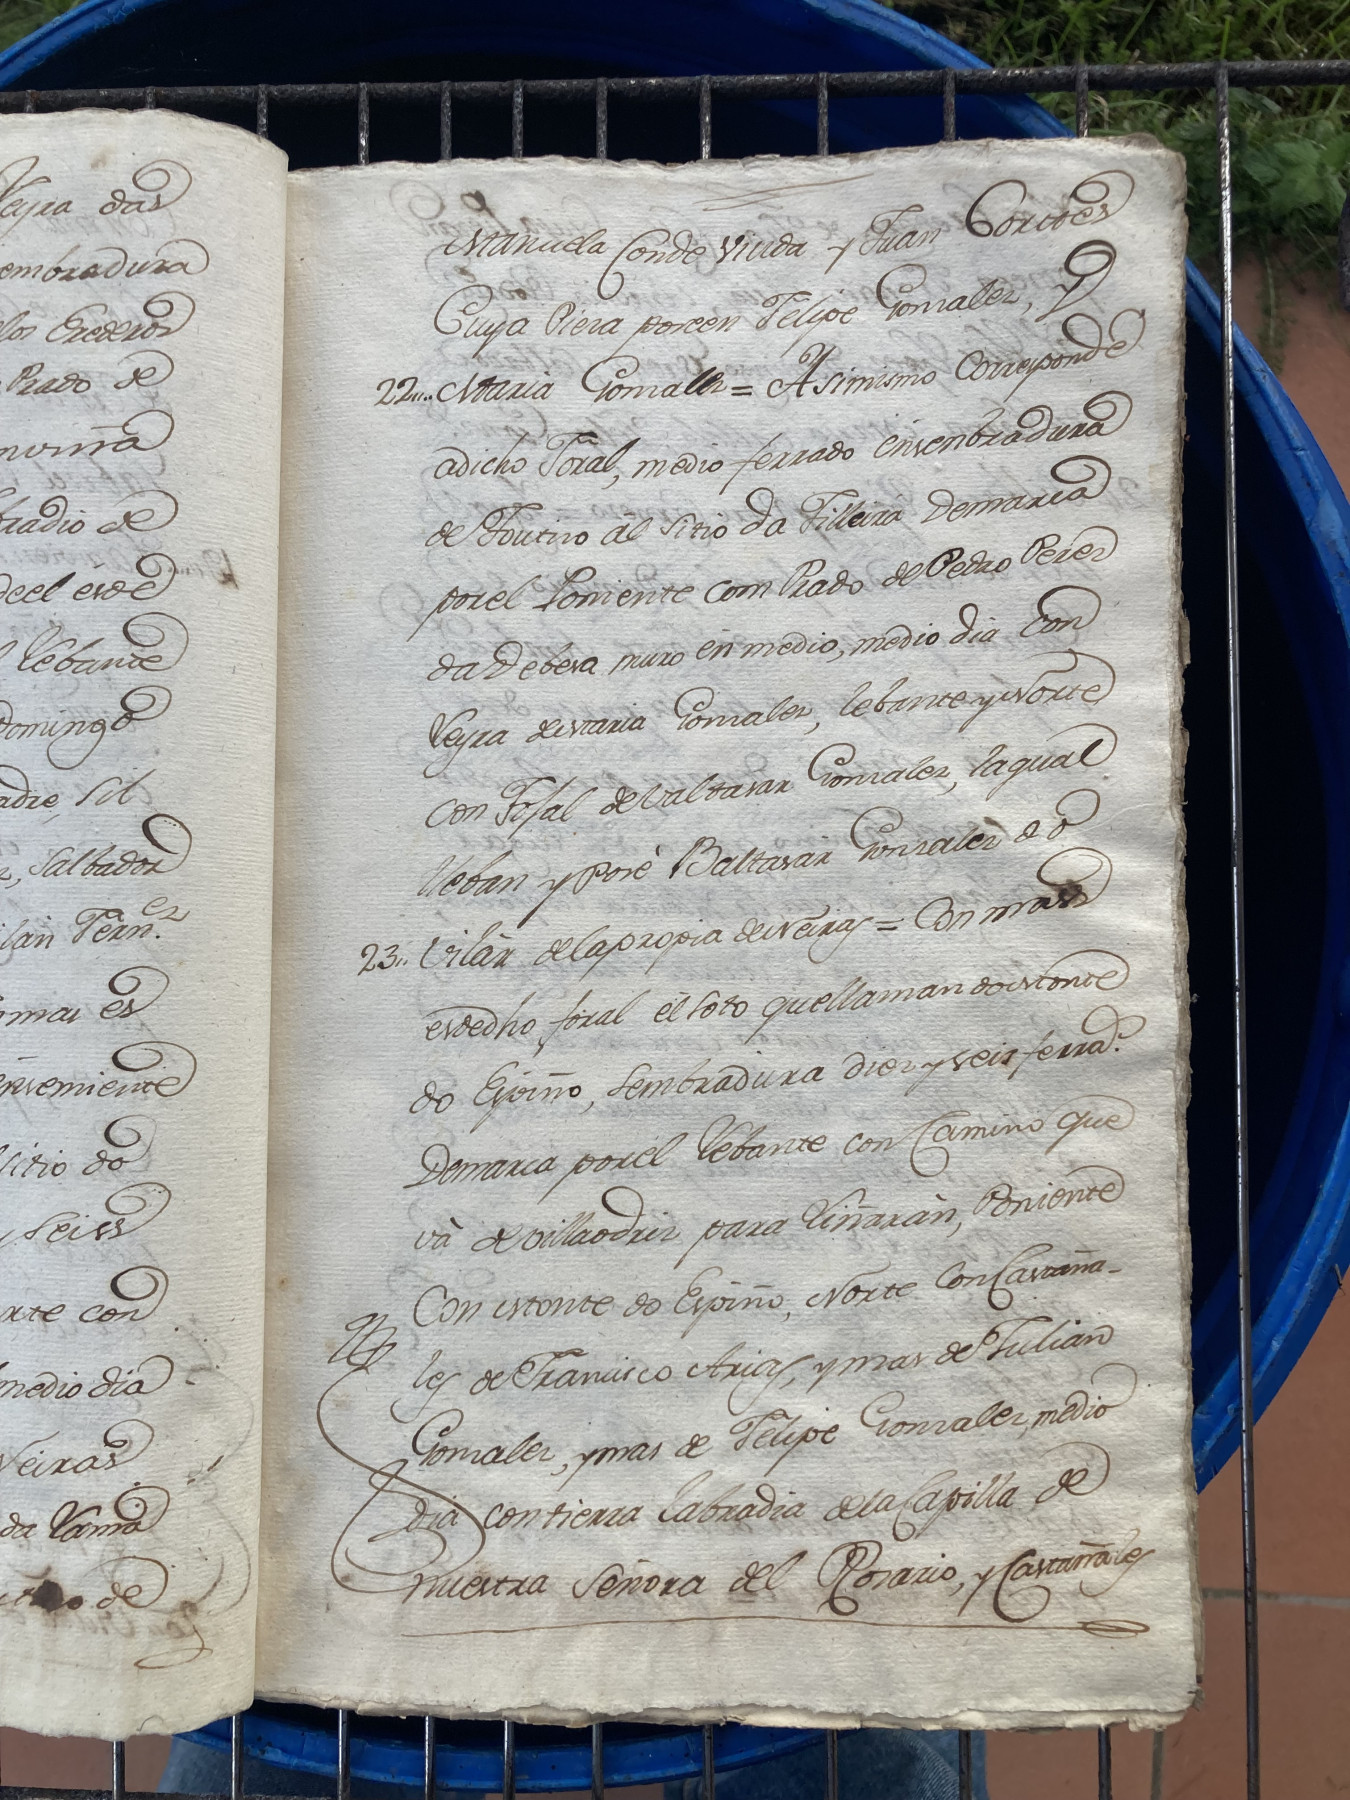 Veyra das
sembradura
los Erederos
Prado de
de
el esde
Lebante
Domingo
adre, Sil
Salbador
lan Fern.ez
mas es
combeniente
sitio do
y Seiss
norte con
medio dia
Veiras
da Rama
de
Manuela Conde Viuda y Juan Cortes
Cuya Pieza poseen Felipe Gonzalez, y
22.... Maria Gonzalez = Asimismo Corresponde
adicho Foral, medio ferrado ensenbradura
de Soutiño al sitio da Filleira Demarca
porel Poniente com Prado de Pedro Perez
da Debesa muro en medio, medio dia con
Veyra de Maria Gonzalez, lebante y Norte
con Tojal de Valtasar Gonzalez, laqual
lleban y Posé Baltasar Gonzalez do
23.. Vilar dela propia de Neiras = Con mas
es dedho foral el soto quellaman do Monte
do Espiño, Sembradura diez y seis ferrad.s
Demarca porel Lebante con Camino que
và de Villaodriz para Viñaràn, Poniente
Con Monte do Espiño, Norte Con Castaña-
les de Francisco Arias, y mas de Julian
Gonzalez, y mas de Felipe Gonzalez, medio
dia con tierra Labradia de la Capilla de
nuestra Señora del Rosario, y Castañales